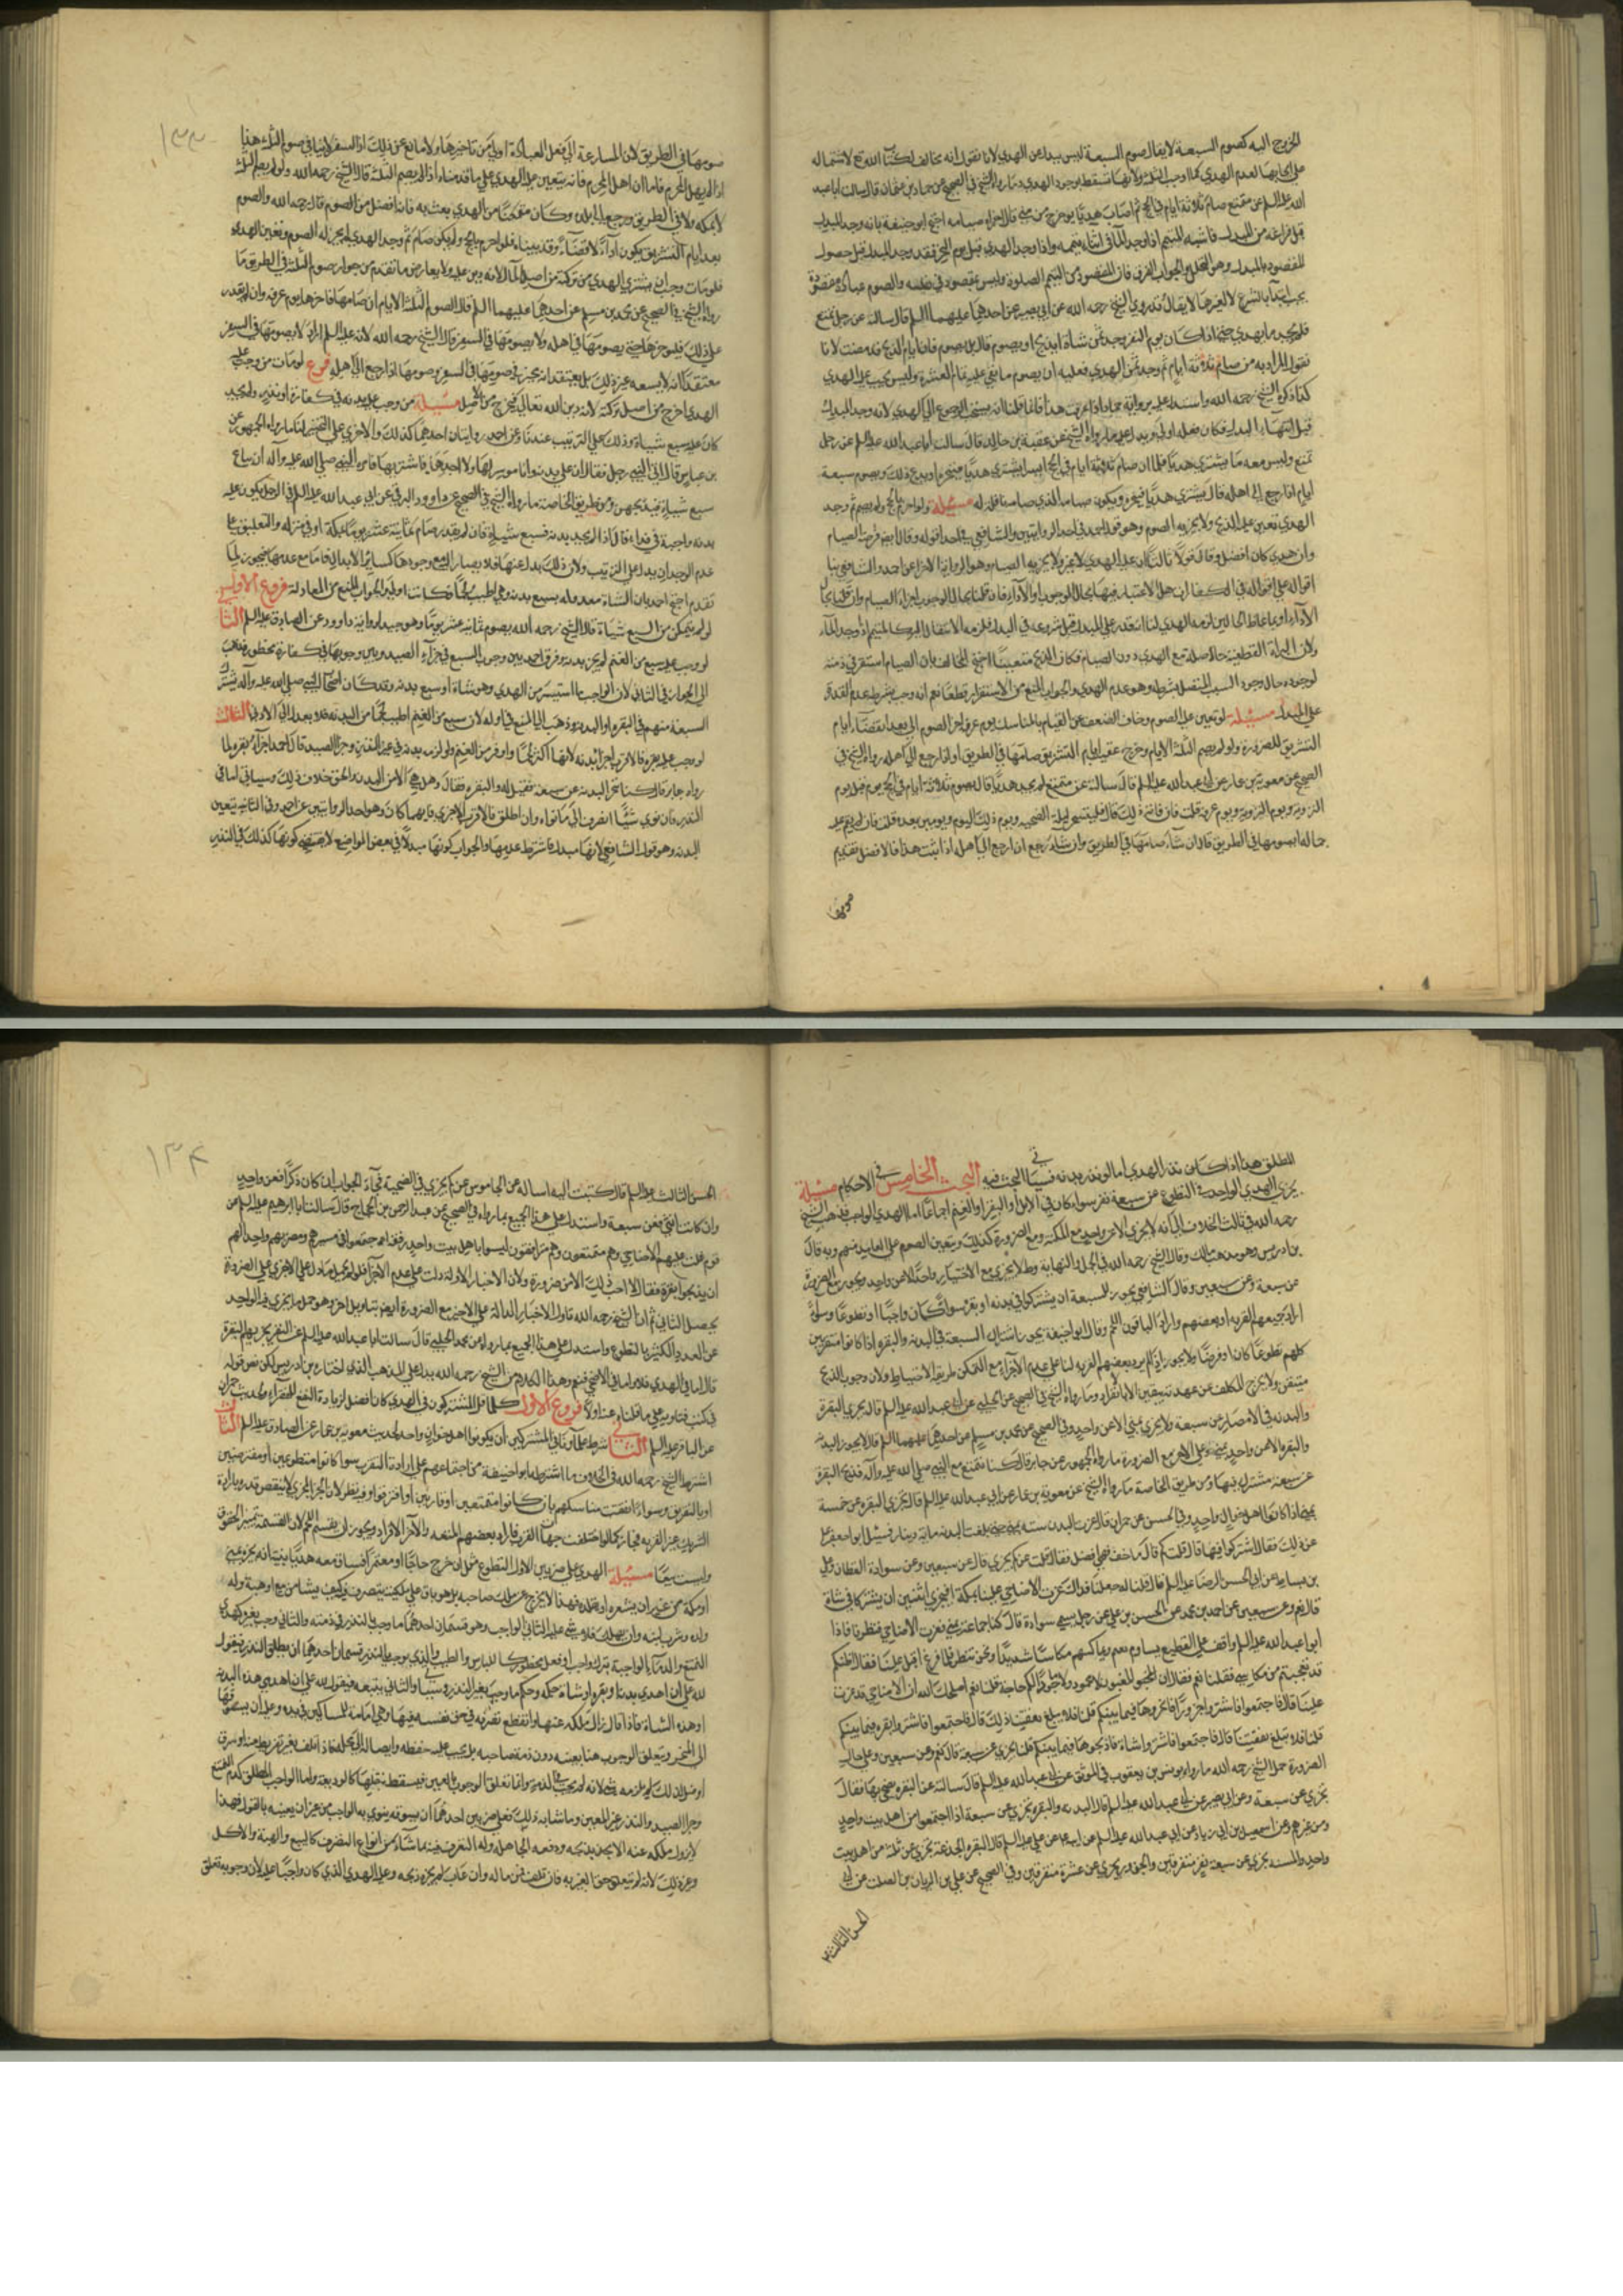 الخروج اليه كصوم السبعة لا يقال صوم السبعة ليس ببدل عن الهدي لانا نقول انه مخالف لكتاب الله تع لاشتماله
على ايجابها لعدم الهدي كما اوجب الثلثة ولانها تسقط بوجود الهدي وما رواه الشيخ في الصحيح عن حماد بن عثمان قال سالت ابا عبد
الله عليه السلم عن متمتع صام ثلاثة ايام في الحج ثم اصاب هديا يوم خرج من منى قال اجزاه صيامه احتج ابو حنيفة بانه وجد المبدل
قبل فراغه من البدل فاشبه المتيمم اذا وجد الماء في اثناء تيممه واذا وجد الهدي قبل يوم النحر فقد وجد المبدل قبل حصول
المقصود بالبدل وهو التحلل والجواب الفرق فان المقصود من التيمم الصلوة وليس مقصودا في نفسه والصوم عبادة مقصودة
يجب ابتداء بالشرع لا لغيرها لا يقال قد روى الشيخ رحمه الله عن ابي بصير عن احدهما عليهما السلم قال سالته عن رجل تمتع
فلم يجد ما يهدي حتى اذا كان يوم النفر وجد ثمن شاة ايذبح او يصوم قال بل يصوم فان ايام الذبح قد مضت لانا
نقول المراد به من صام ثلاثة ايام ثم وجد ثمن الهدي فعليه ان يصوم ما بقي عليه تمام العشرة وليس يجب عليه الهدي
كذا ذكره الشيخ رحمه الله واستدل عليه برواية حماد اذا عرفت هذا فانما قلنا انه يستحب الرجوع الى الهدي لانه وجد المبدل
قبل انتهاء البدل فكان فعله اولى ويدل عليه ما رواه الشيخ عن عقبة بن خالد قال سالت ابا عبد الله عليه السلم عن رجل
تمتع وليس معه ما يشتري هديا فلما ان صام ثلاثة ايام في الحج ايسر ايشتري هديا فينحره او يدع ذلك ويصوم سبعة
ايام اذا رجع الى اهله قال يشتري هديا فينحره ويكون صيامه الذي صامه نافلة له مسئلة ولو احرم بالحج ولم يصم ثم وجد
الهدي تعين عليه الذبح ولا يجزيه الصوم وهو قول احمد في احدى الروايتين والشافعي في احد اقواله وقال ايضا فرضه الصيام
وان هدى كان افضل وقال قولا ثالثا ان عليه الهدي لا غير ولا يجزيه الصيام وهو الرواية الاخرى عن احمد والشافعي بنا
اقواله على اقواله في الكفارات هل الاعتبار فيها بحال الوجوب او الاداء فان قلنا بحال الوجوب اجزاه الصيام وان قلنا بحال
الاداء او باغلظ الحالين لزمه الهدي لنا انه قدر على المبدل قبل شروعه في البدل فلزمه الانتقال اليه كالمتيمم اذا وجد الماء
ولان البراة القطعية حاصلة مع الهدي دون الصيام فكان الذبح متعينا احتج المخالف بان الصيام استقر في ذمته
لوجوده حال وجود السبب المتصل بشرطه وهو عدم الهدي والجواب المنع من الاستقرار قطعا نعم انه وجب بشرط عدم القدرة
على المبدل مسئلة لو تعين عليه الصوم وخاف الضعف عن القيام بالمناسك يوم عرفة اخر الصوم الى بعد انقضاء ايام
التشريق للضرورة ولو لم يصم الثلثة الايام وخرج عقيب ايام التشريق صامها في الطريق او اذا رجع الى اهله رواه الشيخ في
الصحيح عن معوية بن عمار عن ابي عبد الله عليه السلم قال سالته عن متمتع لم يجد هديا قال يصوم ثلاثة ايام في الحج يوم قبل يوم
التروية ويوم التروية ويوم عرفة قلت فان فاته ذلك قال فليتسحر ليلة الحصبة ويوم ذلك اليوم ويومين بعده قلت فان لم يقم عليه
جماله ايصومها في الطريق قال ان شاء صامها في الطريق وان شاء رجع اذا رجع الى اهله اذا ثبت هذا فالافضل تقديم
صومها
١٣٣
صومها في الطريق لان المسارعة الى فعل العبادة اولى من تاخيرها ولا مانع عن ذلك اذ السفر لا ينافي صوم الثلث هذا
اذا لم يهل المحرم فاما ان اهل المحرم فانه يتعين عليه الهدي على ما قدمناه اذا لم يصم الثلثة قال الشيخ رحمه الله ولو لم يصم الثلثة
لا بمكة ولا في الطريق ورجع الى بلده وكان متمكنا من الهدي بعث به فانه افضل من الصوم قال رحمه الله والصوم
بعد ايام التشريق يكون اداء لا قضاء وقد بيناه فلو احرم بالحج ولم يكن صام ثم وجد الهدي لم يجز له الصوم وتعين الهدي
فلو مات وجب ان يشتري الهدي من تركته من اصل المال لانه دين عليه ولا يعارض ما تقدم من جواز صوم الثلثة في الطريق ما
رواه الشيخ في الصحيح عن محمد بن مسلم عن احدهما عليهما السلم قال الصوم الثلثة الايام ان صامها فاخرها يوم عرفة وان لم يقدر
على ذلك فليؤخرها حتى يصومها في اهله ولا يصومها في السفر قال الشيخ رحمه الله لانه عليه السلم اراد لا يصومها في السفر
معتقدا انه لا يسعه غير ذلك بل يعتقد انه مخير في صومها في السفر وصومها اذا رجع الى اهله فرع لو مات من وجب عليه
الهدي اخرج من اصل تركته لانه دين الله تعالى فيخرج من الاصل مسئلة من وجب عليه بدنة في كفارة او نذر ولم يجد
كان عليه سبع شياة وذلك على الترتيب عندنا وعن احمد روايتان احدهما كذلك والاخرى على التخيير لنا ما رواه الجمهور عن
بن عباس قال اتى النبي رجل فقال ان علي بدنة وانا موسر لها ولا اجدها فاشتريها فامره النبي صلى الله عليه وآله ان يبتاع
سبع شياة فيذبحهن ومن طريق الخاصة ما رواه الشيخ في الصحيح عن داوود الرقي عن ابي عبد الله عليه السلم في الرجل يكون عليه
بدنة واجبة في فداء قال اذا لم يجد بدنة فسبع شياة فان لم يقدر صام ثمانية عشر يوما بمكة او في منزله والتعليق على
عدم الوجدان يدل على الترتيب ولان ذلك بدل عنها فلا يصار اليه مع وجودها كسائر الابدال فاما مع عدمها فيجوز لما
تقدم احتج احمد بان الشاة معدولة بسبع بدنة وهي اطيب لحما فكانت اولى والجواب المنع من المعادلة فروع الاول
لو لم يتمكن من السبع شياة قال الشيخ رحمه الله يصوم ثمانية عشر يوما وهو جيد لرواية داوود عن الصادق عليه السلم الثا
لو وجب عليه سبع من الغنم لم يجز بدنة وفرق احمد بين وجوب السبع في جزاء الصيد وبين وجوبها في كفارة محظور وذهب
الى الجواز في الثاني لان الواجب ما استيسر من الهدي وهو شاة او سبع بدنة وقد كان اصحاب النبي صلى الله عليه وآله يشترك
السبعة منهم في البقرة او البدنة وذهب الى المنع في الاول لان سبع من الغنم اطيب لحما من البدنة فلا يعدل الى الادنى الثالث
لو وجب عليه بقرة فالاقرب اجزاء بدنة لانها اكثر لحما واوفر من الغنم ولو لزمه بدنة في غير النذر وجزاء الصيد قال احمد اجزاه بقرة لما
رواه جابر قال كنا ننحر البدنة عن سبعة فقيل له والبقرة فقال وهل هي الا من البدن والحق خلاف ذلك وسياتي اما في
النذر فان نوى شيئا انصرف الى ما نواه وان اطلق فالاقرب الاجزاء بايهما كان وهو احد الروايتين عن احمد وفي الثانية يتعين
البدنة وهو قول الشافعي لانها مبدل فاشترط عدمها والجواب كونها مبدلا في بعض المواضع لا يقتضي كونها كذلك في النذر
المطلق هذا اذا كان نذر الهدي اما لو نذر بدنة فسياتي البحث فيه البحث الخامس في الاحكام مسئلة
يجزي الهدي الواحد في التطوع عن سبعة نفر سواء كان في الابل او البقر او الغنم اجماعا اما الهدي الواجب فذهب الشيخ
رحمه الله في ثالث الخلاف الى انه لا يجزي الا عن واحد مع المكنة ومع الضرورة كذلك ويتعين الصوم على الفاقد منهم وبه قال
بن ادريس وهو مذهب مالك وقال الشيخ رحمه الله في الجمل والنهاية وط لا يجزي مع الاختيار واحد الا عن واحد ويجوز مع الضرورة
عن سبعة وعن سبعين وقال الشافعي يجوز للسبعة ان يشتركوا في بدنة او بقرة سواء كان واجبا او تطوعا وسواء
اراد جميعهم القربة او بعضهم واراد الباقون اللحم وقال ابو حنيفة يجوز اشتراك السبعة في البدنة والبقرة اذا كانوا متقربين
كلهم تطوعا كان او فرضا ولا يجوز اذا لم يرد بعضهم القربة لنا على عدم الاجزاء مع التمكن طريقة الاحتياط ولان وجوب الذبح
متيقن ولا يخرج المكلف عن عهدته بيقين الا بالانفراد وما رواه الشيخ في الصحيح عن الحلبي عن ابي عبد الله عليه السلم قال تجزي البقرة
والبدنة في الامصار عن سبعة ولا يجزي بمنى الا عن واحد وفي الصحيح عن محمد بن مسلم عن احدهما عليهما السلم قال لا يجوز البدنة
والبقرة الا عن واحد بمنى وعلى الاجزاء مع الضرورة ما رواه الجمهور عن جابر قال كنا نتمتع مع النبي صلى الله عليه وآله فنذبح البقرة
عن سبعة نشترك فيها ومن طريق الخاصة ما رواه الشيخ عن معوية بن عمار عن ابي عبد الله عليه السلم قال تجزي البقرة عن خمسة
بمنى اذا كانوا اهل خوان واحد وفي الحسن عن حمران قال عزت البدن سنة بمنى حتى بلغت البدنة مائة دينار فسئل ابو جعفر عليه
عن ذلك فقال اشتركوا فيها قال قلت كم قال ما خف فهو افضل فقال قلت عن كم يجزي قال عن سبعين وعن سوادة القطان وعلي
بن اسباط عن ابي الحسن الرضا عليه السلم قالا قلنا له جعلنا فداك عزت الاضاحي علينا بمكة افيجزي اثنين ان يشتركا في شاة
قال نعم وعن سبعين عن احمد بن محمد عن الحسن بن علي عن رجل يسمى سوادة قال كنا جماعة بمنى فعزت الاضاحي فنظرنا فاذا
ابو عبد الله عليه السلم واقف على القطيع يساوم بغنم ويماكسهم مكاسا شديدا ونحن ننتظر فلما فرغ اقبل علينا فقال اظنكم
قد تعجبتم من مكاسي فقلنا نعم فقال ان المغبون لا محمود ولا ماجور الكم حاجة قلنا نعم اصلحك الله ان الاضاحي قد عزت
علينا قال فاجتمعوا فاشتروا جزورا فانحروها فيما بينكم قلنا فلا يبلغ نفقتنا ذلك قال فاجتمعوا فاشتروا بقرة فيما بينكم
قلنا فلا تبلغ نفقتنا قال فاجتمعوا فاشتروا شاة فاذبحوها فيما بينكم قلنا تجزي عن سبعة قال نعم وعن سبعين وعلى حال
الضرورة حمل الشيخ رحمه الله ما رواه يونس بن يعقوب في الموثق عن ابي عبد الله عليه السلم قال سالته عن البقرة يضحى بها فقال
تجزي عن سبعة وعن ابي بصير عن ابي عبد الله عليه السلم قال البدنة والبقرة تجزي عن سبعة اذا اجتمعوا من اهل بيت واحد
ومن غيرهم وعن اسمعيل بن ابي زياد عن ابي عبد الله عليه السلم عن ابيه عن علي عليه السلم قال البقرة الجذعة تجزي عن ثلثة من اهل بيت
واحد والمسنة تجزي عن سبعة نفر متفرقين والجزور يجزي عن عشرة متفرقين وفي الصحيح عن علي بن الريان بن الصلت عن ابي
الحسن الثالث
١٣٤
الحسن الثالث عليه السلم قال كتبت اليه اساله عن الجاموس عن كم يجزي في الضحية فجاء الجواب ان كان ذكرا فعن واحد
وان كانت انثى فعن سبعة واستدل على هذا الجميع بما رواه في الصحيح عن عبد الرحمن بن الحجاج قال سالت ابا ابرهيم عليه السلم عن
قوم غلت عليهم الاضاحي وهم متمتعون وهم مترافقون ليسوا باهل بيت واحد وقد اجتمعوا في مسيرهم ومضربهم واحد الهم
ان يذبحوا بقرة فقال لا احب ذلك الا من ضرورة ولان الاخبار الاولة دلت على عدم الاجزاء فلو لم يحمل ما دل على الاجزاء على الضرورة
يحصل التنافي ثم ان الشيخ رحمه الله تاول الاخبار الدالة على الاجزاء مع الضرورة ايضا بتاويل اخر وهو حمل ما يجزي فيه الواحد
عن العدد الكثير بالتطوع واستدل على هذا الجميع بما رواه عن محمد الحلبي قال سالت ابا عبد الله عليه السلم عن النفر يجزيهم البقرة
قال اما في الهدي فلا واما في الاضحى فنعم وهذا الكلام من الشيخ رحمه الله يدل على المذهب الذي اختاره بن ادريس لكن نص قوله
في كتب فتاويه على ما نقلناه عنه اولا فروع الاول كلما قل المشتركون في الهدي كان افضل لزيادة النفع للفقراء ولحديث حمران
عن الباقر عليه السلم الثاني شرط علماؤنا في المشتركين ان يكونوا اهل خوان واحد لحديث معوية بن عمار عن الصادق عليه السلم الثالث
اشترط الشيخ رحمه الله في الخلاف ما اشترطه ابو حنيفة من اجتماعهم على ارادة التقرب سواء كانوا متطوعين او مفترضين
او بالتفريق وسواء اتفقت مناسكهم بان كانوا متمتعين او قارنين او افترقوا وفيه نظر لان الجزء المجزي لا ينقص قدره بارادة
الشريك غير القربة فجاز كما لو اختلفت جهات القرب فاراد بعضهم المتعة والاخر الافراد ويجوز ان يقتسموا اللحم لان القسمة تمييز الحقوق
وليست بيعا مسئلة الهدي على ضربين الاول التطوع مثل ان خرج حاجا او معتمرا فساق معه هديا بنية انه ينحره بمنى
او بمكة من غير ان يشعره او يقلده فهذا لا يخرج عن ملك صاحبه بل هو باق على ملكه يتصرف فيه كيف يشاء من بيع او هبة وله
ولده وشرب لبنه وان هلك فلا شيء عليه الثاني الواجب وهو قسمان احدهما ما وجب بالنذر في ذمته والثاني وجب بغيره كهدي
التمتع والدماء الواجبة بترك واجب او فعل محظور كاللباس والطيب والذي يوجب بالنذر قسمان احدهما ان يطلق النذر فيقول
لله علي ان اهدي بدنة او بقرة او شاة حكمه وحكم ما وجب بغير النذر وسياتي والثاني ان يعينه فيقول لله علي ان اهدي هذه البدنة
او هذه الشاة فاذا قال زال ملكه عنها وانقطع تصرفه في حق نفسه فيها وهي امانة للمساكين في يده وعليه ان يسوقها
الى المنحر ويتعلق الوجوب هنا بعينه دون ذمة صاحبه بل يجب عليه حفظه وايصاله الى محله فاذا تلف بغير تفريط منه او سرق
او ضل ان ذلك لم يلزمه شيء لانه لم يجب في الذمة وانما تعلق الوجوب بالعين فيسقط بتلفها كالوديعة واما الواجب المطلق كدم التمتع
وجزاء الصيد والنذر غير المعين وما شابه ذلك فعلى ضربين احدهما ان يسوقه ينوي به الواجب من غير ان يعينه بالقول فهذا
لا يزول ملكه عنه الا بعد ذبحه ودفعه الى اهله وله التصرف فيه بما شاء من انواع التصرف كالبيع والهبة والاكل
وغير ذلك لانه لم يتعلق حق الغير به فان تلف فمن ماله وان عاب لم يجزه ذبحه وعليه الهدي الذي كان واجبا عليه لان وجوبه تعلق